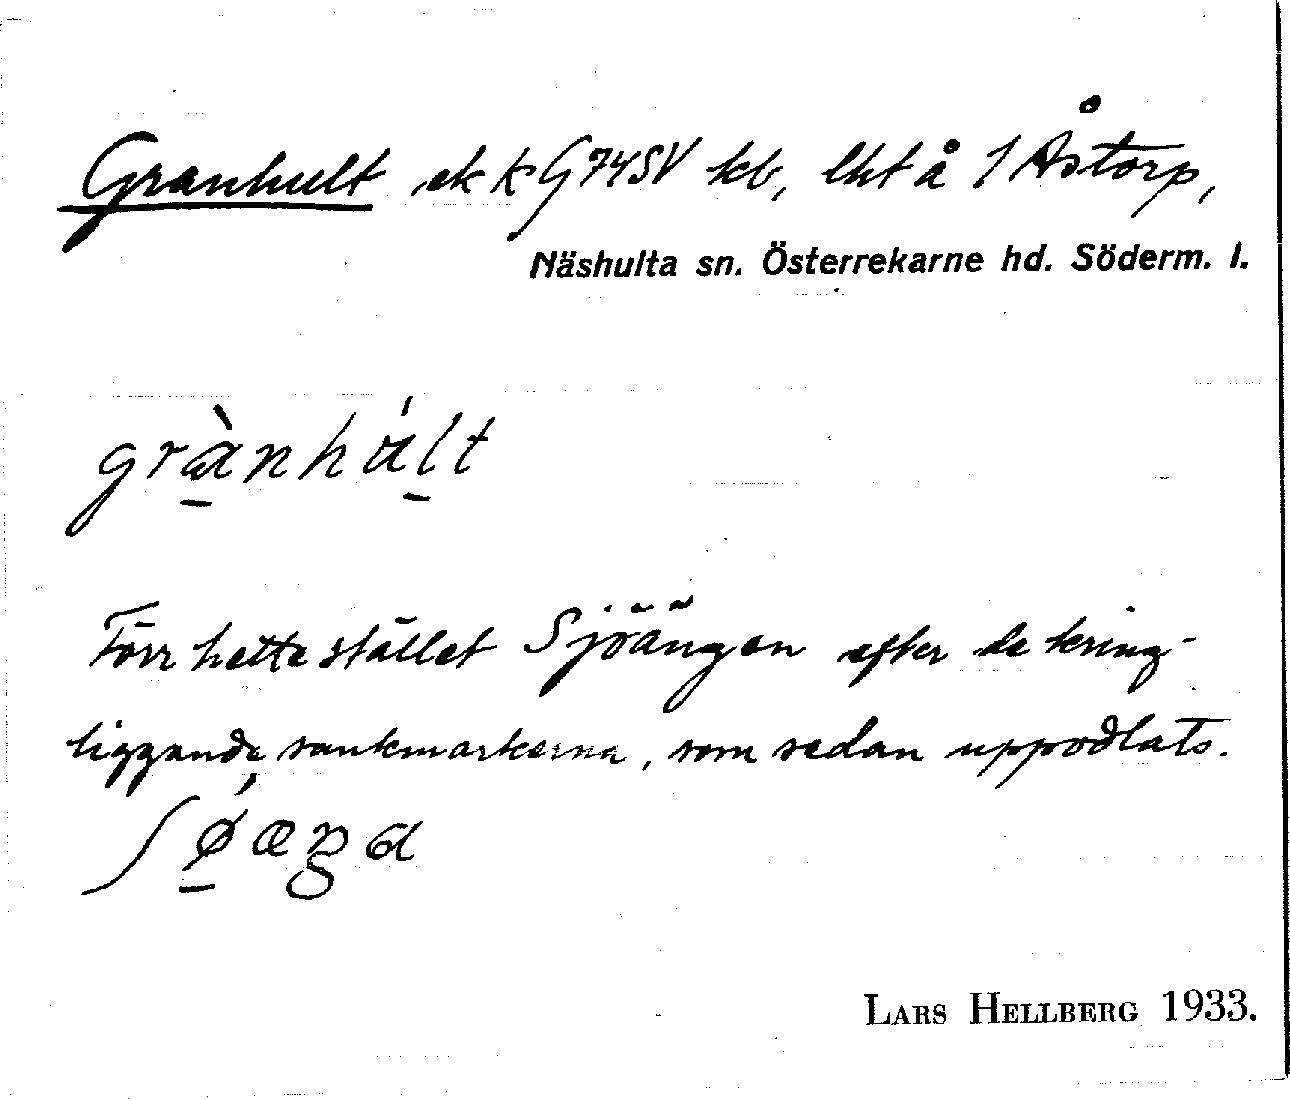 Granhult ek k G74SV kb, lht å 1 Åstorp,
Näshulta sn. Österrekarne hd. Söderm. l.
grànhált
Förr hette stället Sjöängen efter de kring-
liggande sankmarkerna, som sedan uppodlats.
ʃǿæŋa
LARS HELLBERG 1933.